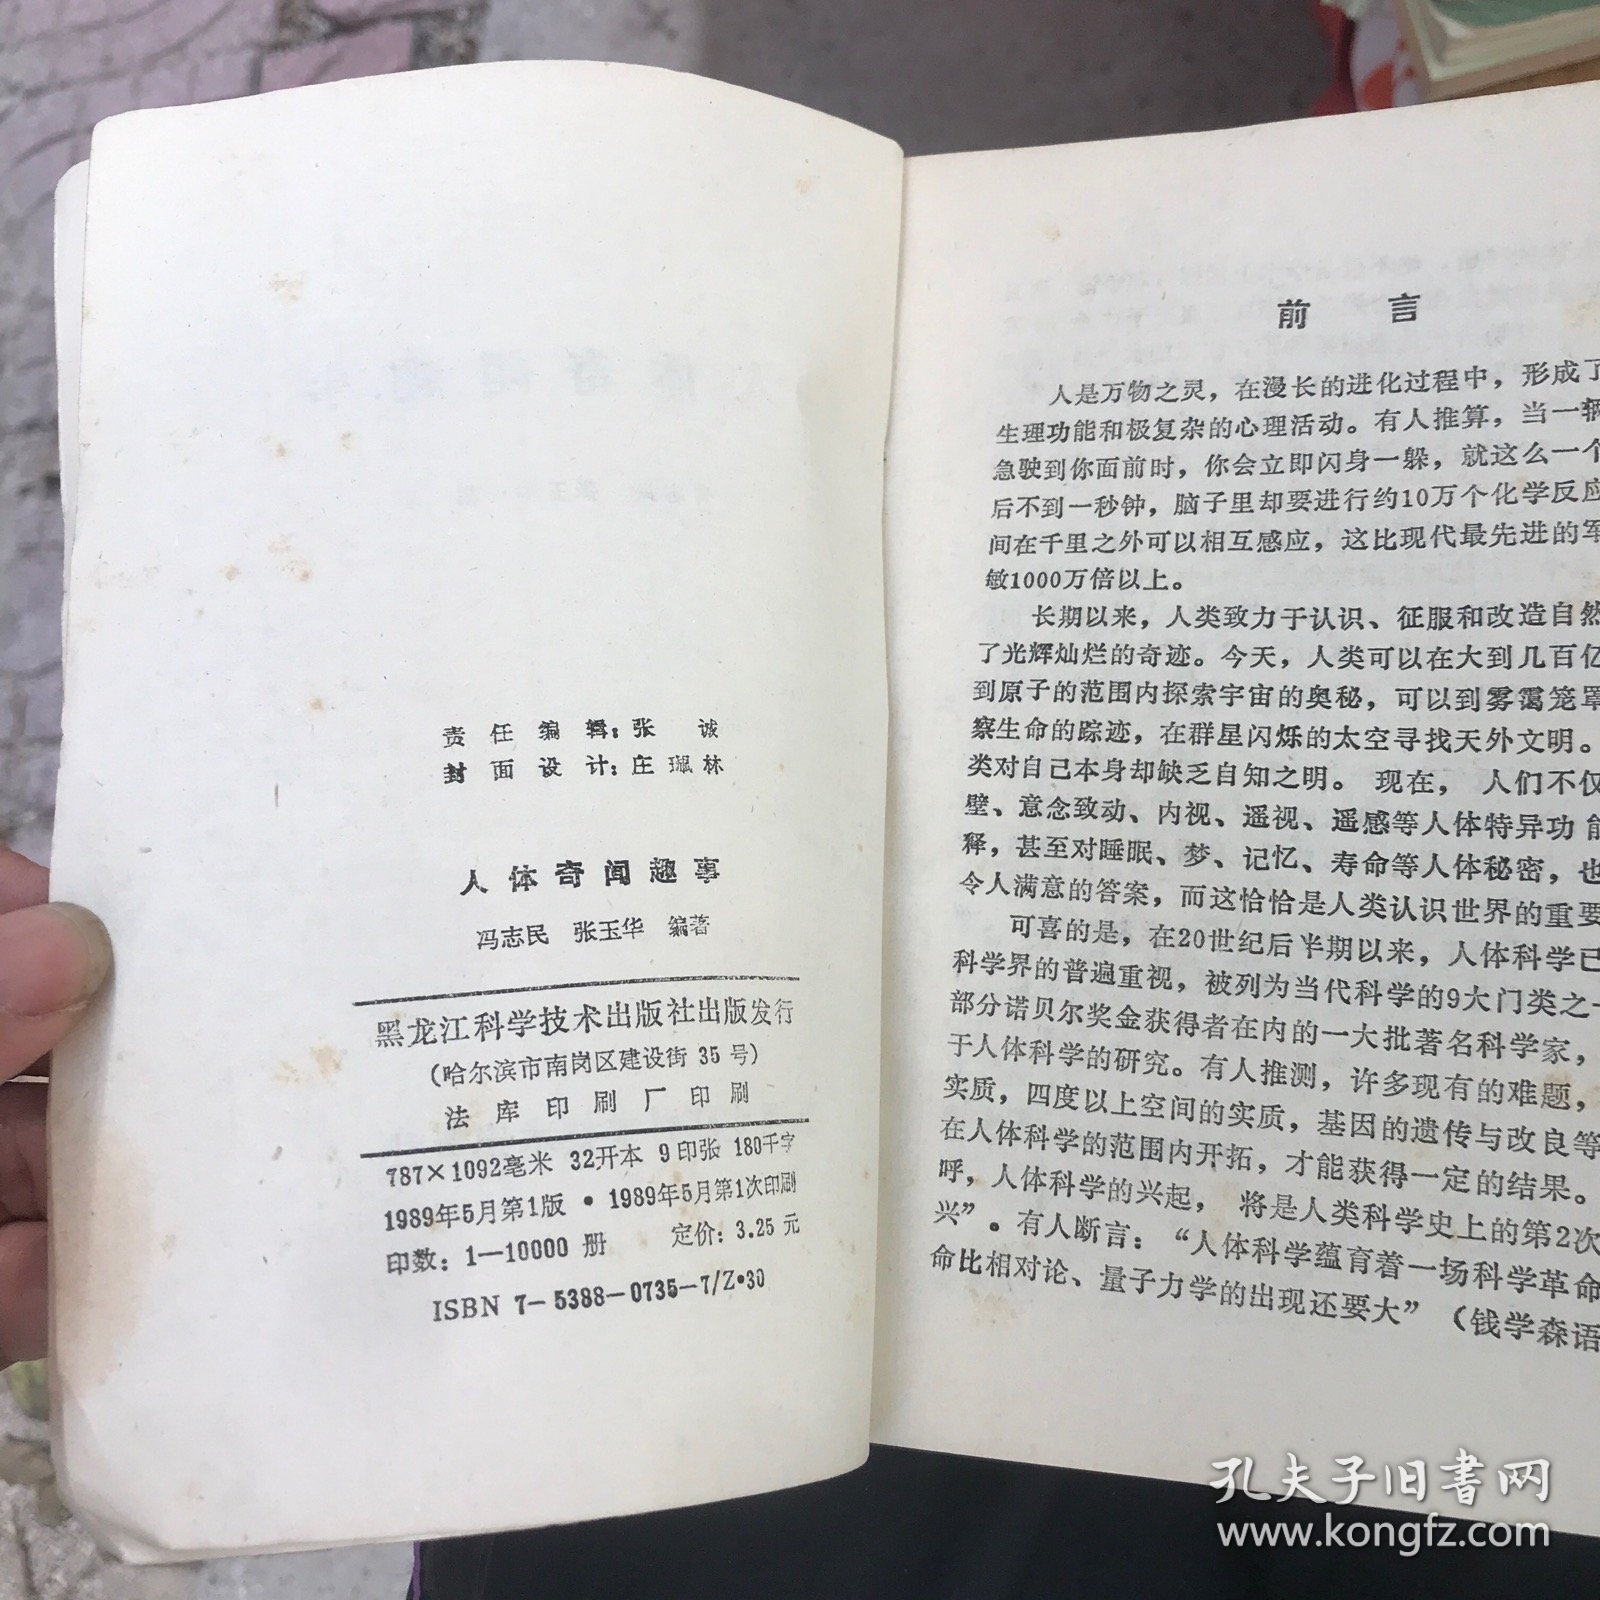 责任编辑：张 诚
封面设计：庄珮林
人体奇闻趣事
冯志民 张玉华 编著
黑龙江科学技术出版社出版发行
（哈尔滨市南岗区建设街 35 号）
法库印刷厂印刷
787×1092毫米 32开本 9印张 180千字
1989年5月第1版·1989年5月第1次印刷
印数：1—10000 册 定价：3.25 元
ISBN 7-5388-0735-7/Z·30
前 言
人是万物之灵，在漫长的进化过程中，形成了
生理功能和极复杂的心理活动。有人推算，当一辆
急驶到你面前时，你会立即闪身一躲，就这么一个
后不到一秒钟，脑子里却要进行约10万个化学反应
间在千里之外可以相互感应，这比现代最先进的军
敏1000万倍以上。
长期以来，人类致力于认识、征服和改造自然
了光辉灿烂的奇迹。今天，人类可以在大到几百亿
到原子的范围内探索宇宙的奥秘，可以到雾霭笼罩
察生命的踪迹，在群星闪烁的太空寻找天外文明。
类对自己本身却缺乏自知之明。现在，人们不仅
壁、意念致动、内视、遥视、遥感等人体特异功能
释，甚至对睡眠、梦、记忆、寿命等人体秘密，也
令人满意的答案，而这恰恰是人类认识世界的重要
可喜的是，在20世纪后半期以来，人体科学已
科学界的普遍重视，被列为当代科学的9大门类之一
部分诺贝尔奖金获得者在内的一大批著名科学家，
于人体科学的研究。有人推测，许多现有的难题，
实质，四度以上空间的实质，基因的遗传与改良等
在人体科学的范围内开拓，才能获得一定的结果。
呼，人体科学的兴起，将是人类科学史上的第2次
兴”。有人断言：“人体科学蕴育着一场科学革命
命比相对论、量子力学的出现还要大”（钱学森语
孔夫子旧書网
www.kongfz.com